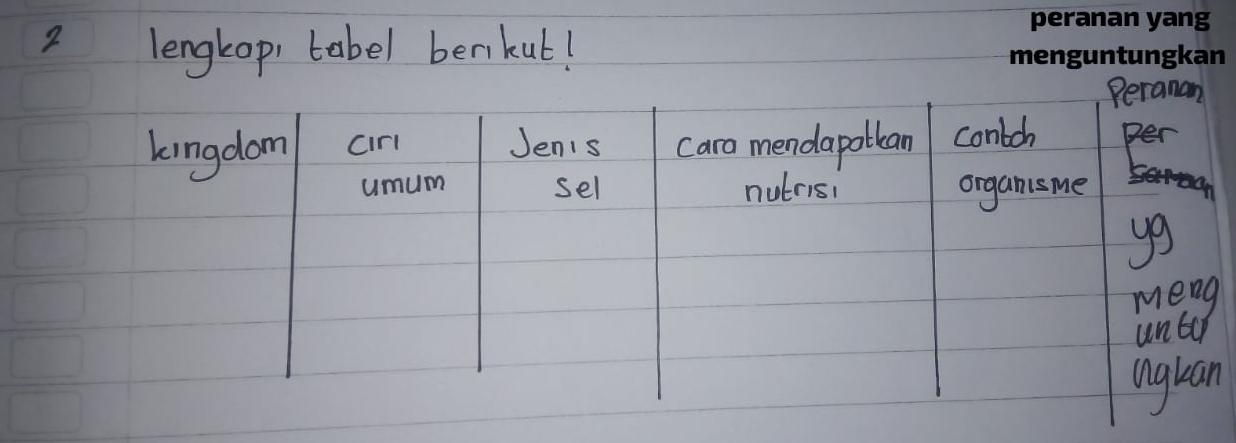 peranan yang
menguntungkan
2 lengkapi tabel berikut!
Peranan
kingdom ciri Jenis cara mendapatkan contoh per
umum sel nutrisi organisme
yg
meng
untu
ngkan